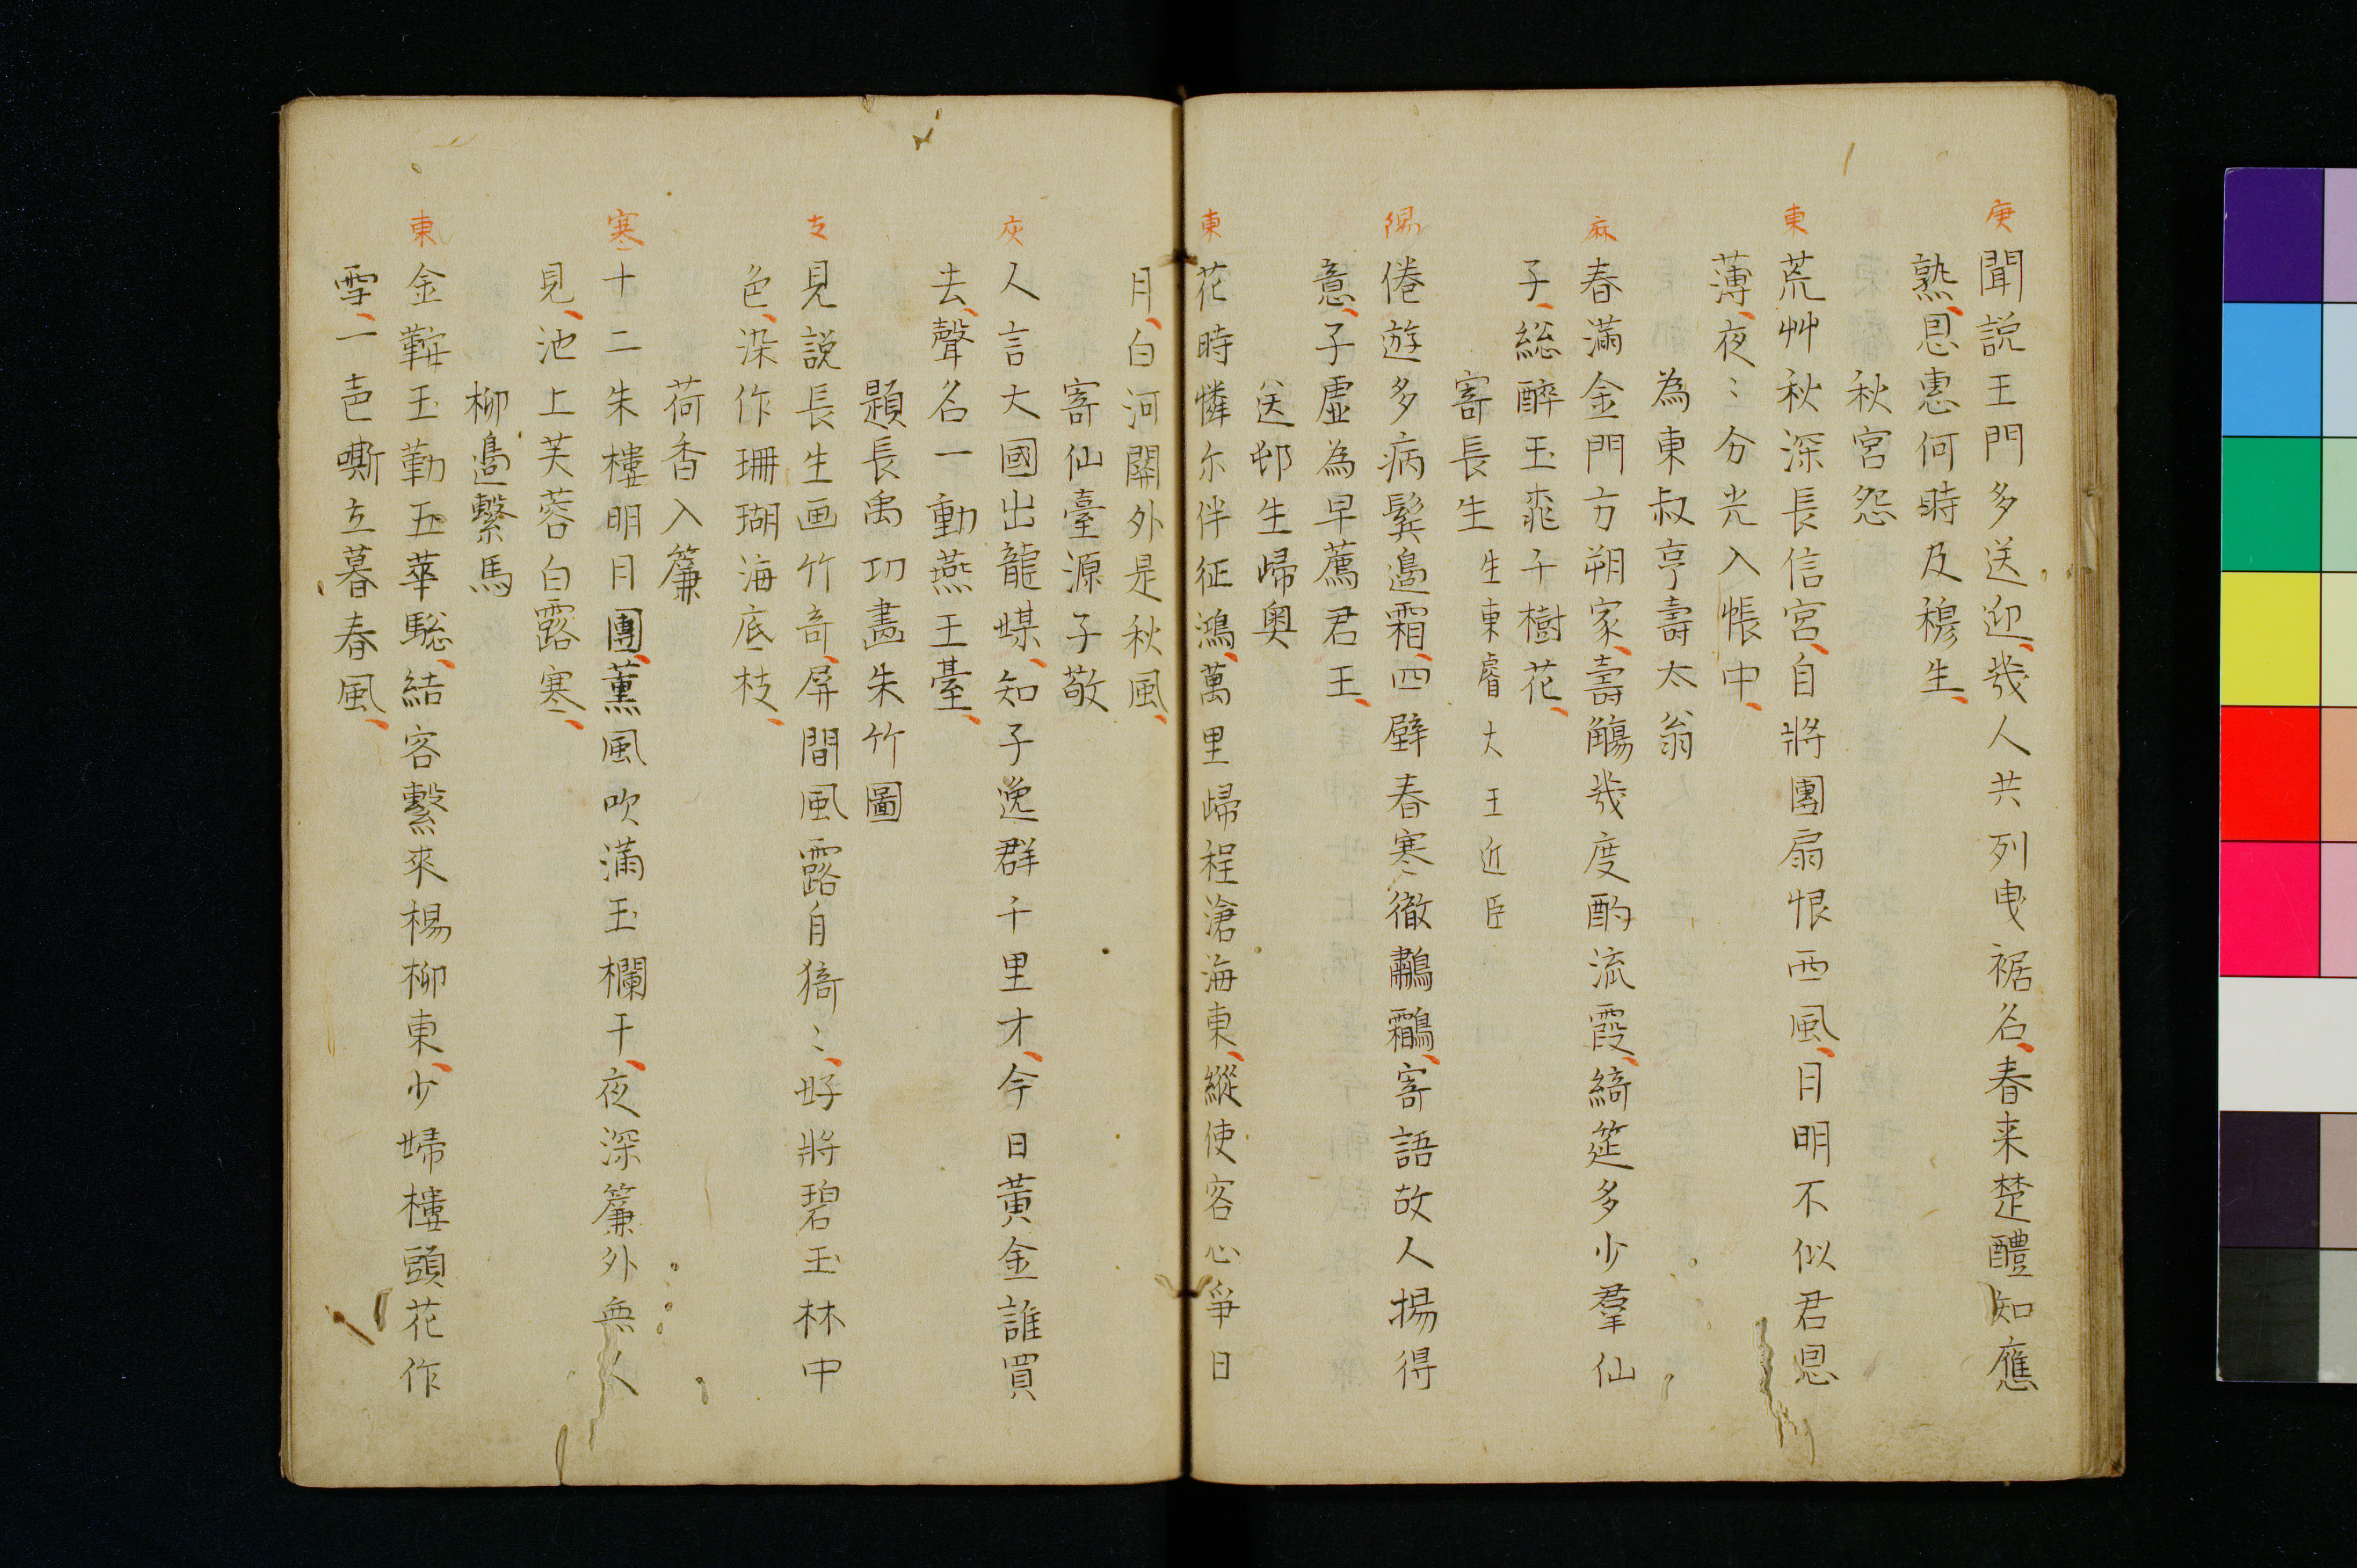 庚 聞説王門多送迎、幾人共列曳裾名、春来楚醴知應
熟、恩恵何時及穆生、
秋宮怨
東 荒艸秋深長信宮、自將團扇恨西風、月明不似君恩
薄、夜〻分光入帳中、
為東叔亨壽太翁
麻 春滿金門方朔家、壽觴幾度酌流霞、綺筵多少羣仙
子、総醉玉桃千樹花、
寄長生 生東睿大王近臣
陽 倦遊多病鬂邉霜、四壁春寒徹鷫鸘、寄語故人揚得
意、子虚為早薦君王、
送邨生歸奥
東 花時憐尓伴征鴻、萬里歸程滄海東、縱使客心爭日
月、白河關外是秋風、
寄仙臺源子敬
灰 人言大國出龍媒、知子逸群千里才、今日黄金誰買
去、聲名一動燕王臺、
題長禹功畫朱竹圖
支 見説長生画竹奇、屏間風露自猗〻、好將碧玉林中
色、染作珊瑚海底枝、
荷香入簾
寒 十二朱樓明月團、薫風吹滿玉欄干、夜深簾外無人
見、池上芙蓉白露寒、
柳邉繫馬
東 金鞍玉勒五華驄、結客繫來楊柳東、少婦樓頭花作
雪、一声嘶立暮春風、